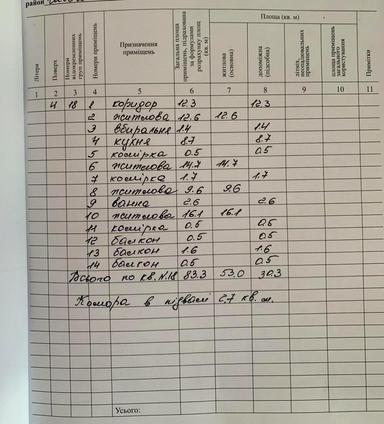 район
Площа (кв. м)
Літери
Поверх
Номери відокремлених груп приміщень
Номери приміщень
Призначення приміщень
Загальна площа приміщень, підрахована за формулами розрахунку площ (кв. м)
житлова (основна)
допоміжна (підсобна)
літніх, неопалювальних приміщень
площа приміщень загального користування
Примітки
1 2 3 4 5 6 7 8 9 10 11
4 18 1 коридор 12.3 12.3
2 житлова 12.6 12.6
3 вбиральня 1.4 1.4
4 кухня 8.7 8.7
5 комірка 0.5 0.5
6 житлова 14.7 14.7
7 комірка 1.7 1.7
8 житлова 9.6 9.6
9 ванна 2.6 2.6
10 житлова 16.1 16.1
11 комірка 0.5 0.5
12 балкон 0.5 0.5
13 балкон 1.6 1.6
14 балкон 0.5 0.5
Всього по кв. N.18 83.3 53.0 30.3
Комора в підвалі 2,7 кв. м.
Усього: